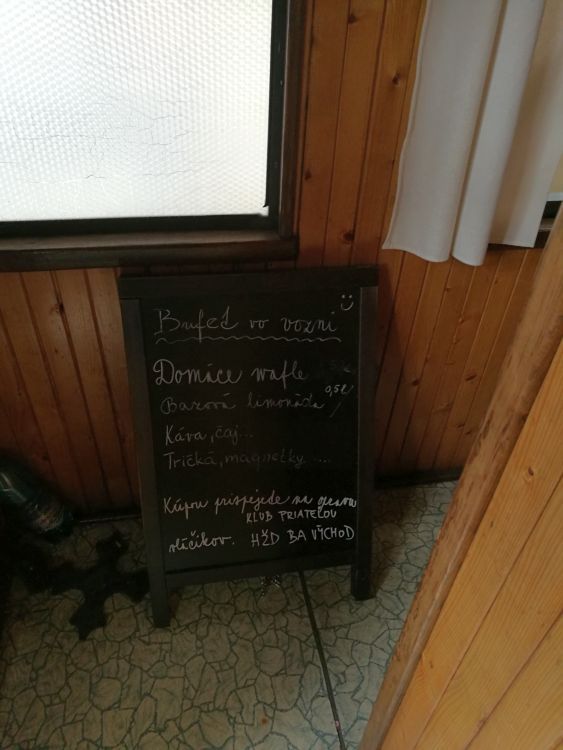 Bufet vo vozni
Domáce wafle
Bazová limonáda 0,5l/
Káva, čaj...
Tričká, magnetky ....
Kúpou prispejete na opravu
KLUB PRIATEĽOV
vláčikov. HŽD BA VÝCHOD